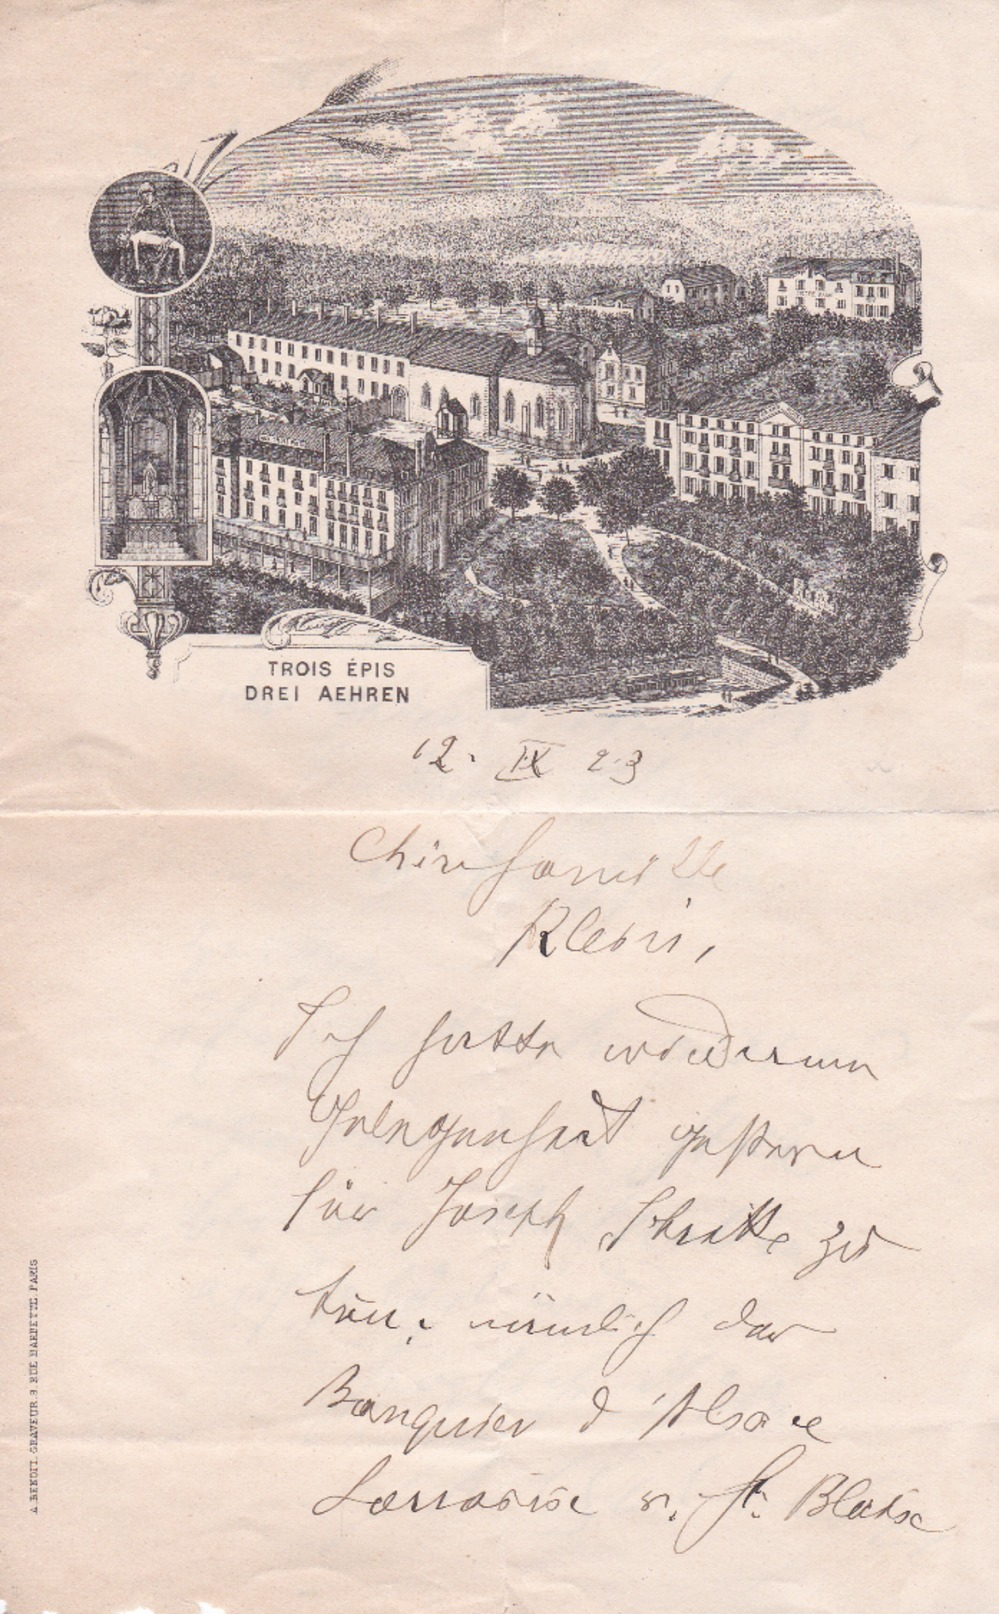 TROIS ÉPIS
DREI AEHREN
12. IX 23
Chère famille
Klein,
Ich hatte wiederum
Gelegenheit gestern
für Joseph Schritte zu
tun: nämlich der
Banquier d'Alsace
Lorraine v. St. Blaise
A. BENOIT. GRAVEUR. 3. RUE BARBETTE. PARIS